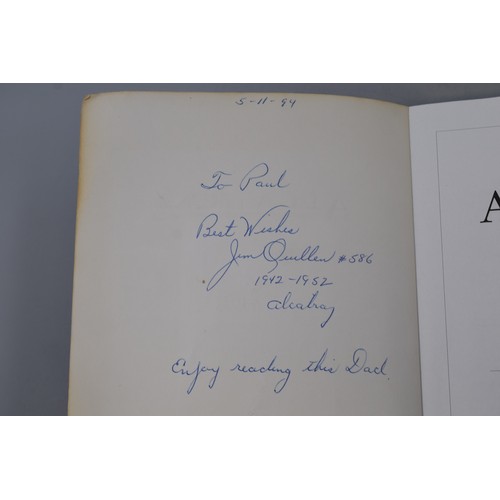 5-11-94
To Paul
Best Wishes
Jim Quillen #586
1942-1952
Alcatraz
Enjoy reading this Dad.
A